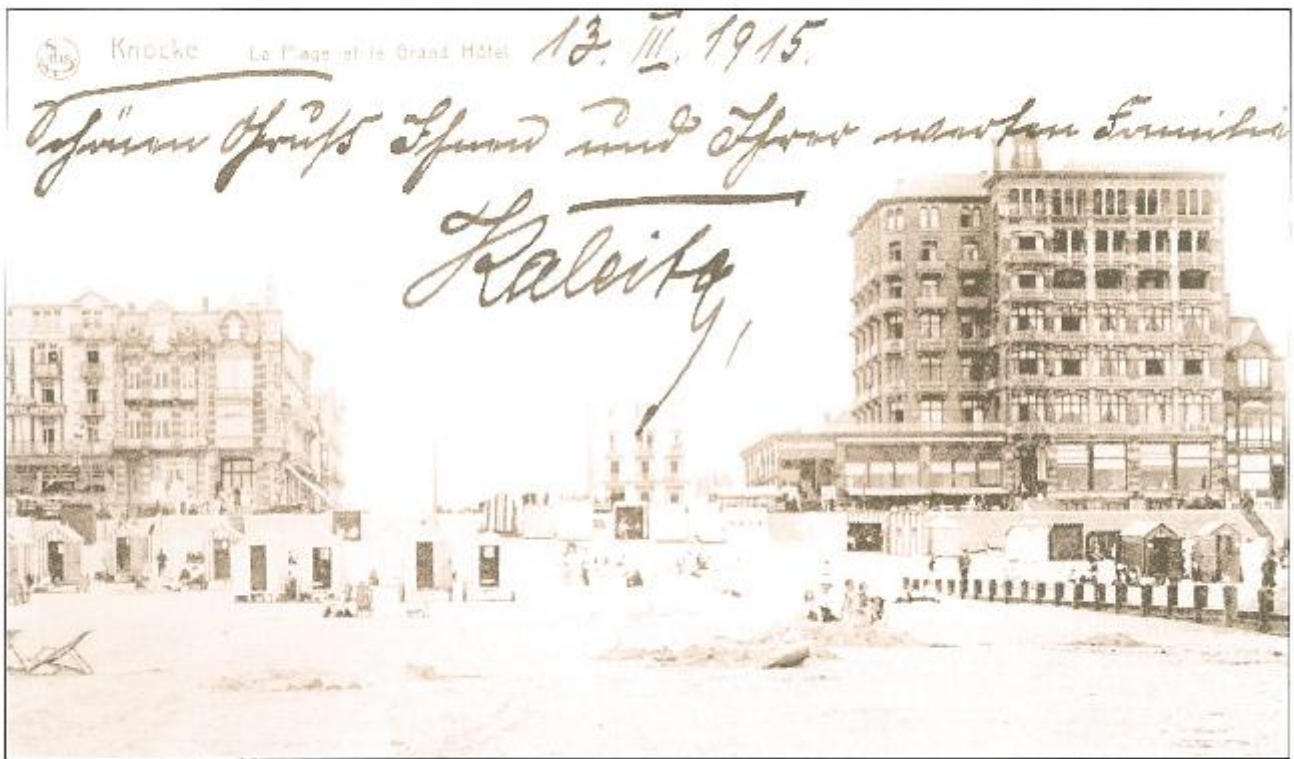 Nels
Knocke La Plage et le Grand Hôtel 13. III. 1915.
Schönen Gruß Ihnen und Ihrer werten Familie
Kaleita